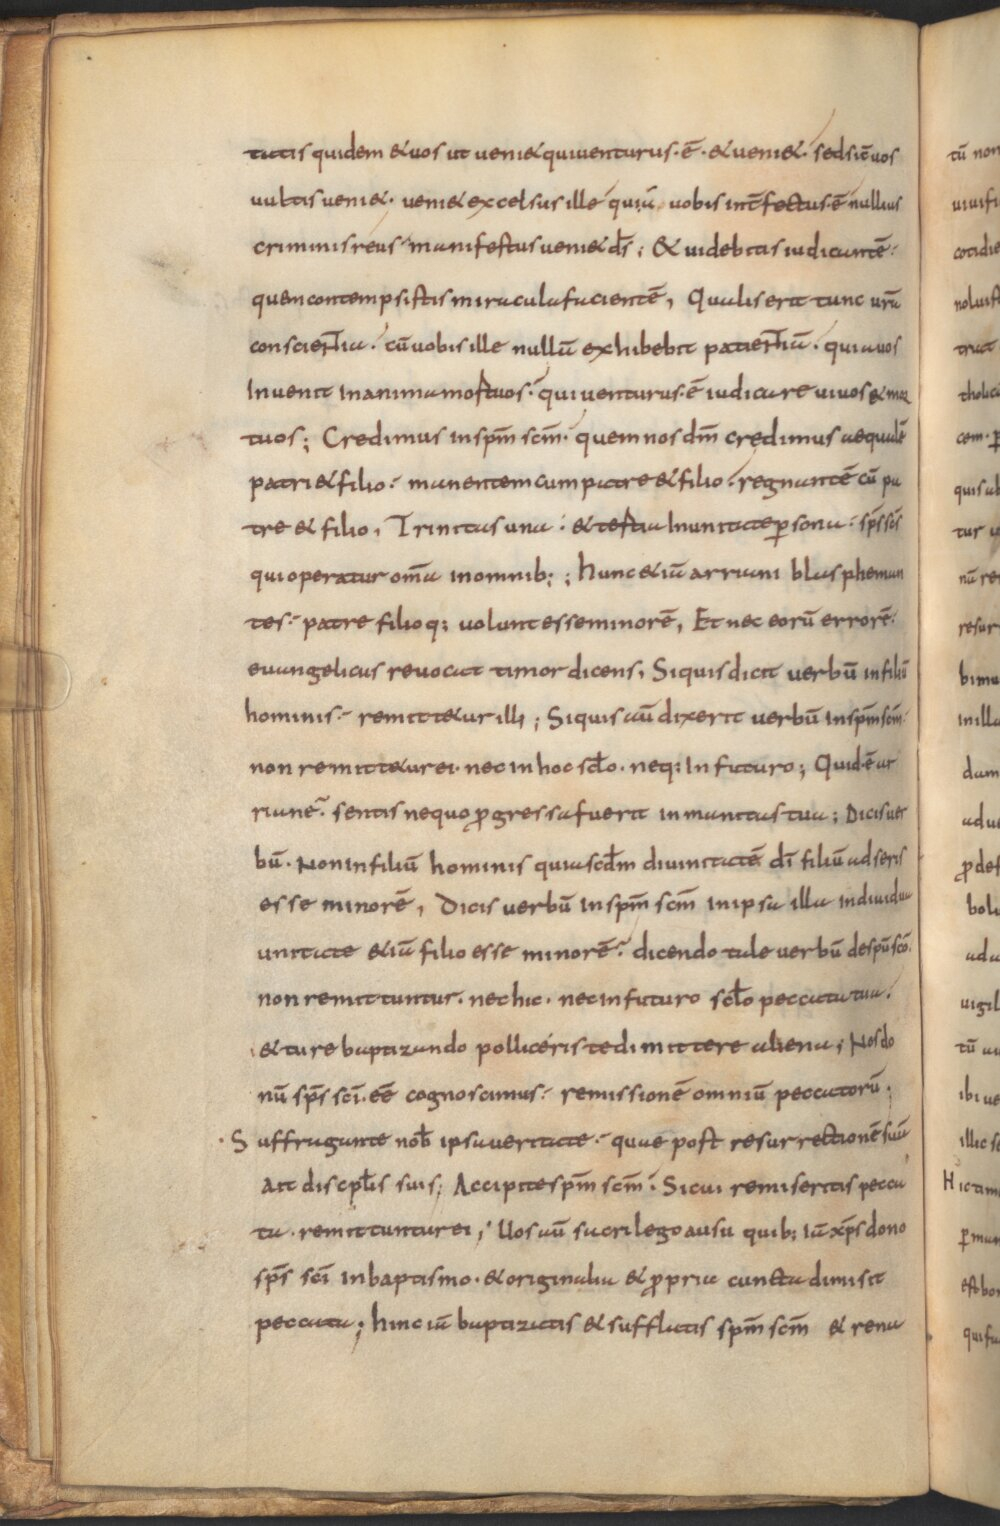 tatis quidem & vos ut veni& qui venturus · ē · & veni& · sed sic̄ vos
vultis veni& · veni& excelsus ille qui ū vobis int̄fectus · ē nullius
criminis reus · manifestus veni& d̄s ; & videbitis iudicantē
quem contempsistis miracula facientē , Qualis erit tunc urā
conscientia · cū vobis ille nullū exhibebit patientiā · quia vos
Invenit In anima mortuos · qui venturus · ē iudicare vivos & mor
tuos ; Credimus in sp̄m sc̄m · quem nos dm̄ credimus aequalē
patri & filio · manentem cum patre & filio · regnantē cū pa
tre & filio , Trinitas una · & testia In unitate p̱sona · sp̄s sc̄s
qui operatur omā in omnib; ; hunc &iā arriani blaspheman
tes · patre filioq; volunt esse minorē , Et nec eorū errorē
evangelicus revocat timor dicens , Si quis dicit verbū in filiū
hominis · remitt&ur illi ; Si quis aū dixerit verbū In sp̄m sc̄m
non remitt&ur ei · nec in hoc sc̄lo · neq; In futuro ; Quid · ē ar
riane · sentis ne quo p̱gressa fuerit inmanitas tua ; Dicis ver
bū · Non In filiū hominis quia scdm̄ divinitatē dī filiū adseris
esse minorē , Dicis verbū In sp̄m sc̄m In ipsa illa individua
unitate &iā filio esse minorē · dicendo tale verbū de spū scō
non remittuntur · nec hic · nec in futuro sc̄lo peccata tua ·
& tu rebaptizando polliceris te dimittere aliena ; Nos do
nū sp̄s scī · eē cognoscimus · remissionē omniū peccatorū ;
· Suffragante nob̄ ipsa veritate · quae post resurrectionē suā
ait discip̄lis suis ; Accipite sp̄m sc̄m · Si cui remiseritis pecca
ta · remittuntur ei ; Uos aū sacrilego ausu quib; iā xp̄s dono
sp̄s scī In baptismo · & originalia & p̱pria cuncta dimisit
peccata ; hinc iā baptizatis & sufflatis sp̄m sc̄m & rena